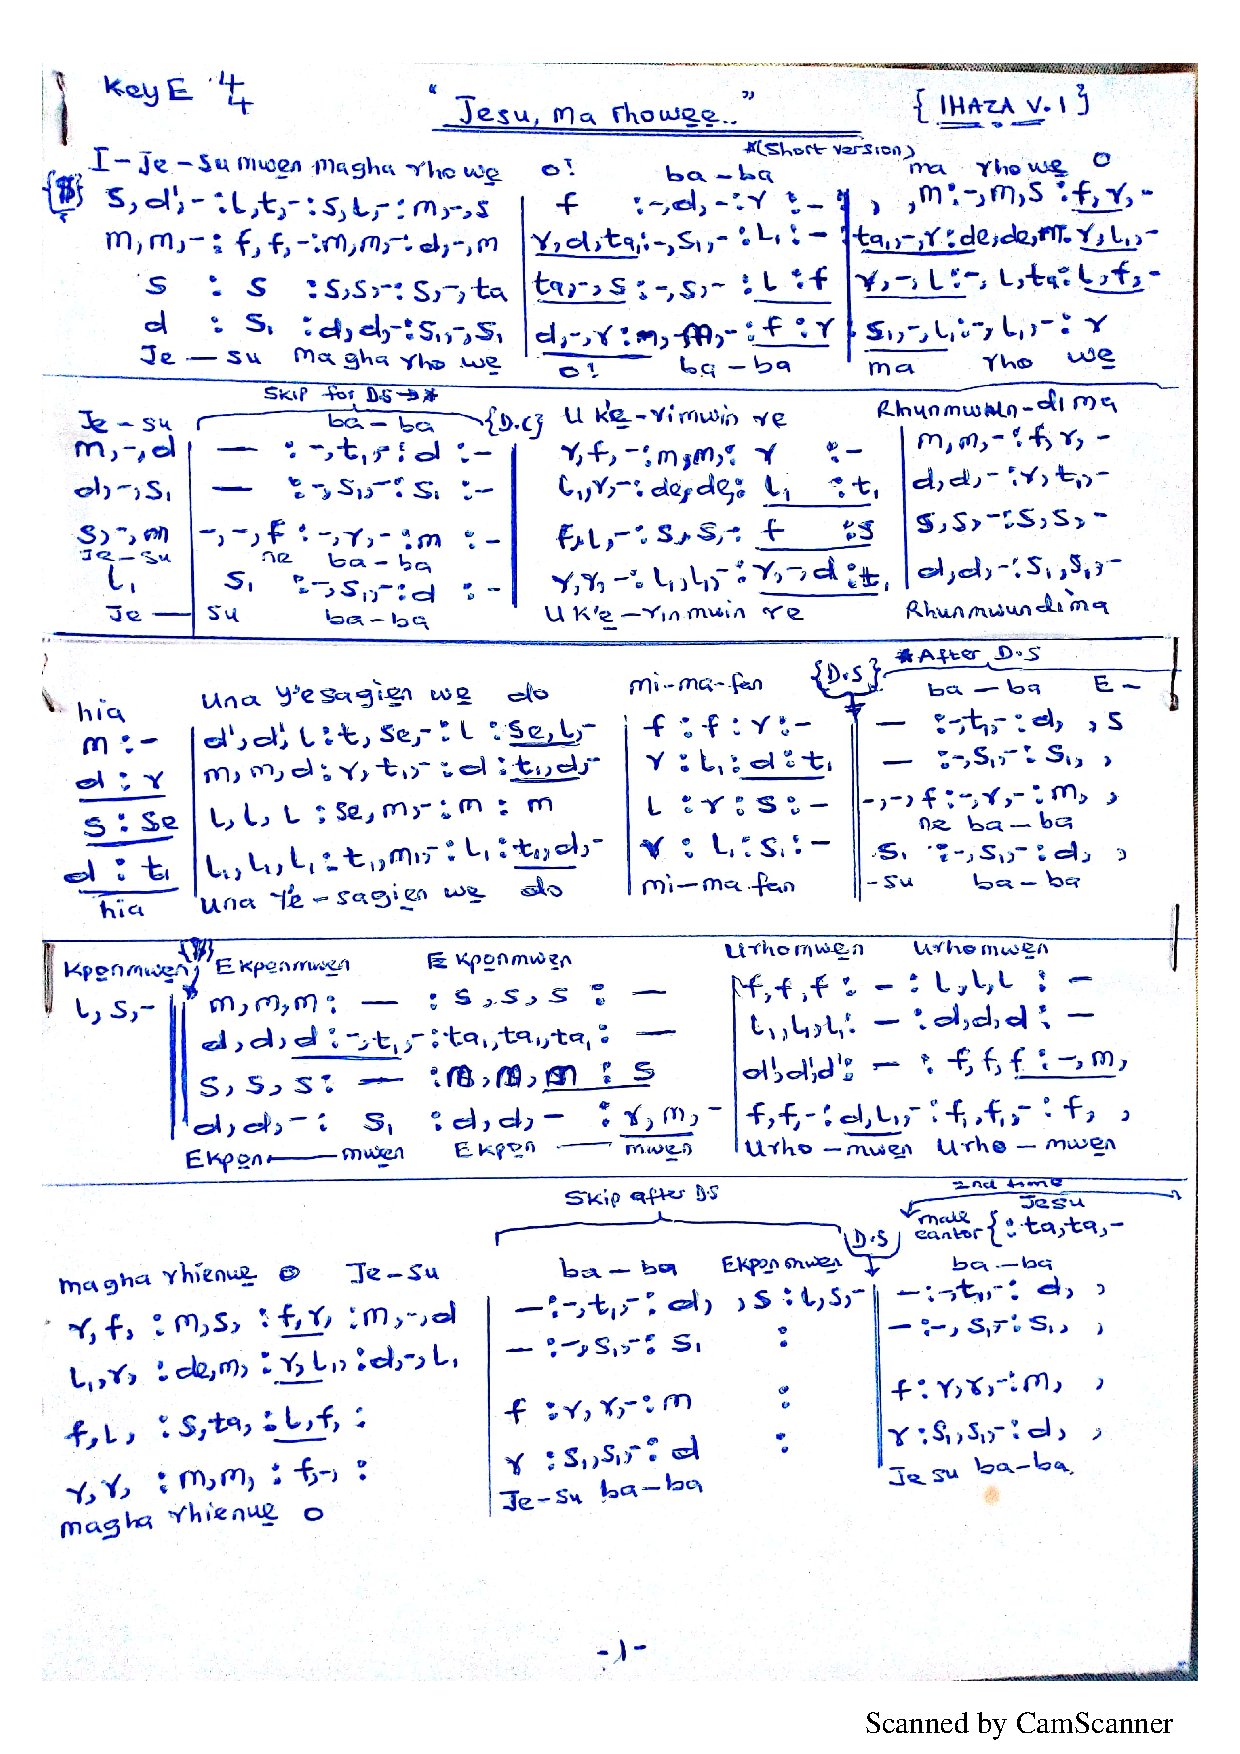 Key E 4/4 "Jesu, ma rhowẹẹ.." { IHAZA V.1 }
*(Short version)
I-Je-su mwen magha rho wẹ o! ba-ba ma rho wẹ o
{$} s, d', -: l, t, -: s, l, -: m, -, s | f :-, d, -: r :- | , , m :-, m, s : f, r, -
m, m, -: f, f, -: m, m, -: d, -, m | r, d, ta₁ :-, s₁, -: l₁ :- | ta₁, -, r : de, de, m. r, l₁, -
s : s : s, s, -: s, -, ta | ta, -, s :-, s, - : l : f | r, -, l :-, l, ta : l, f, -
d : s₁ : d, d, -: s₁, -, s₁ | d, -, r : m, m, -: f : r | s₁, -, l₁ :-, l₁, -: r
Je - su magha rho wẹ o! ba-ba ma rho wẹ
Skip for D.S → *
Je - su ba-ba {D.C} U k'ẹ-rimwin re Rhunmwun-di ma
m, -, d | — :-, t₁, -: d :- | r, f, -: m, m, : r :- | m, m, -: f, r, -
d, -, s₁ | — :-, s₁, -: s₁ :- | l₁, r, -: de, de, : l₁ : t₁ | d, d, -: r, t₁, -
s, -, m | -, -, f :-, r, -: m :- | f, l, -: s, s, -: f : s | s, s, -: s, s, -
Je-su ne ba-ba
l₁ | s₁ :-, s₁, -: d :- | r, r, -: l₁, l₁, -: r, -, d : t₁ | d, d, -: s₁, s₁, -
Je — su ba-ba U k'ẹ-rinmwin re Rhunmwundima
* After D.S
hia Una y'esagiẹn wẹ do mi-ma-fan {D.S} ba-ba E-
m :- | d', d', l : t, se, -: l : se, l, - | f : f : r :- | — :-, t₁, -: d, , s
d : r | m, m, d : r, t₁, -: d : t₁, d, - | r : l₁ : d : t₁ | — :-, s₁, -: s₁, ,
s : se | l, l, l : se, m, -: m : m | l : r : s :- | -, -, f :-, r, -: m, ,
ne ba-ba
d : t₁ | l₁, l₁, l₁ : t₁, m₁, -: l₁ : t₁, d, - | r : l₁ : s₁ :- | s₁ :-, s₁, -: d, ,
hia Una Y'e-sagiẹn wẹ do mi-ma fan -su ba-ba
Kpọnmwen, {$} Ekpọnmwen Ekpọnmwen Urhọmwẹn Urhọmwẹn
l, s, - | m, m, m : — : s, s, s : — | f, f, f : - : l, l, l : -
d, d, d :-, t₁, -: ta₁, ta₁, ta₁ : — | l₁, l₁, l₁ : - : d, d, d : -
s, s, s : — : m, m, m : s | d', d', d' : - : f, f, f :-, m,
d, d, -: s₁ : d, d, - : r, m, - | f, f, -: d, l₁, -: f₁, f₁, -: f, ,
Ekpọn — mwen Ekpọn — mwẹn Urho-mwẹn Urhọ-mwẹn
Skip after D.S 2nd time
Jesu
male cantor { : ta, ta, -
D.S
magha rhienwẹ o Je-su ba-ba Ekpọnmwen ba-ba
r, f, : m, s, : f, r, : m, -, d | —:-, t₁, -: d, , s : l, s, - | -:-, t₁, -: d, ,
l₁, r, : de, m, : r, l₁, : d, -, l₁ | —:-, s₁, -: s₁ : | -:-, s₁, -: s₁, ,
f, l, : s, ta, : l, f, : | f : r, r, -: m : | f : r, r, -: m, ,
r, r, : m, m, : f, -, : | r : s₁, s₁, -: d : | r : s₁, s₁, -: d, ,
magha rhienwẹ o Je-su ba-ba Je su ba-ba.
-1-
Scanned by CamScanner